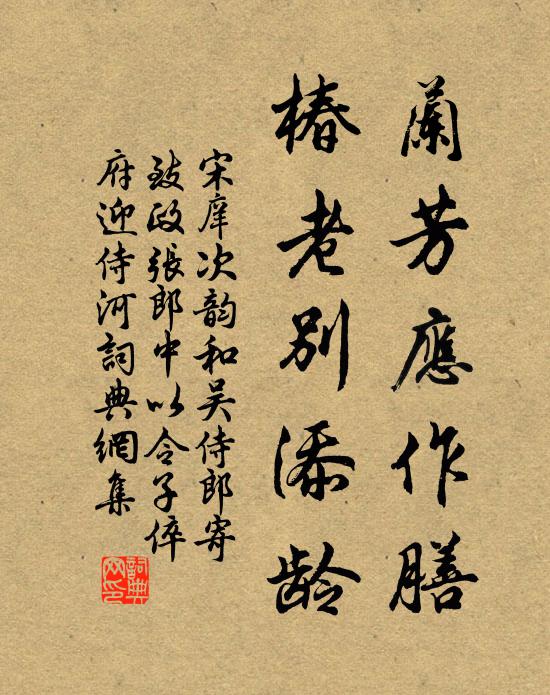 蘭芳應作膳
椿老別添龄
宋庠次韵和吴侍郎寄
致政張郎中以令子倅
府迎侍河詞典網集
詞典
网印